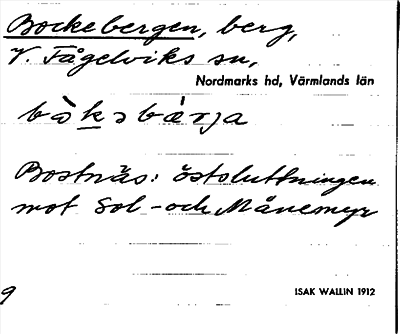 Bockebergen, berg,
V. Fågelviks sn,
Nordmarks hd, Värmlands län
bòkəbárja
Bostnäs: östsluttningen
mot Sol- och Månemyr
9
ISAK WALLIN 1912